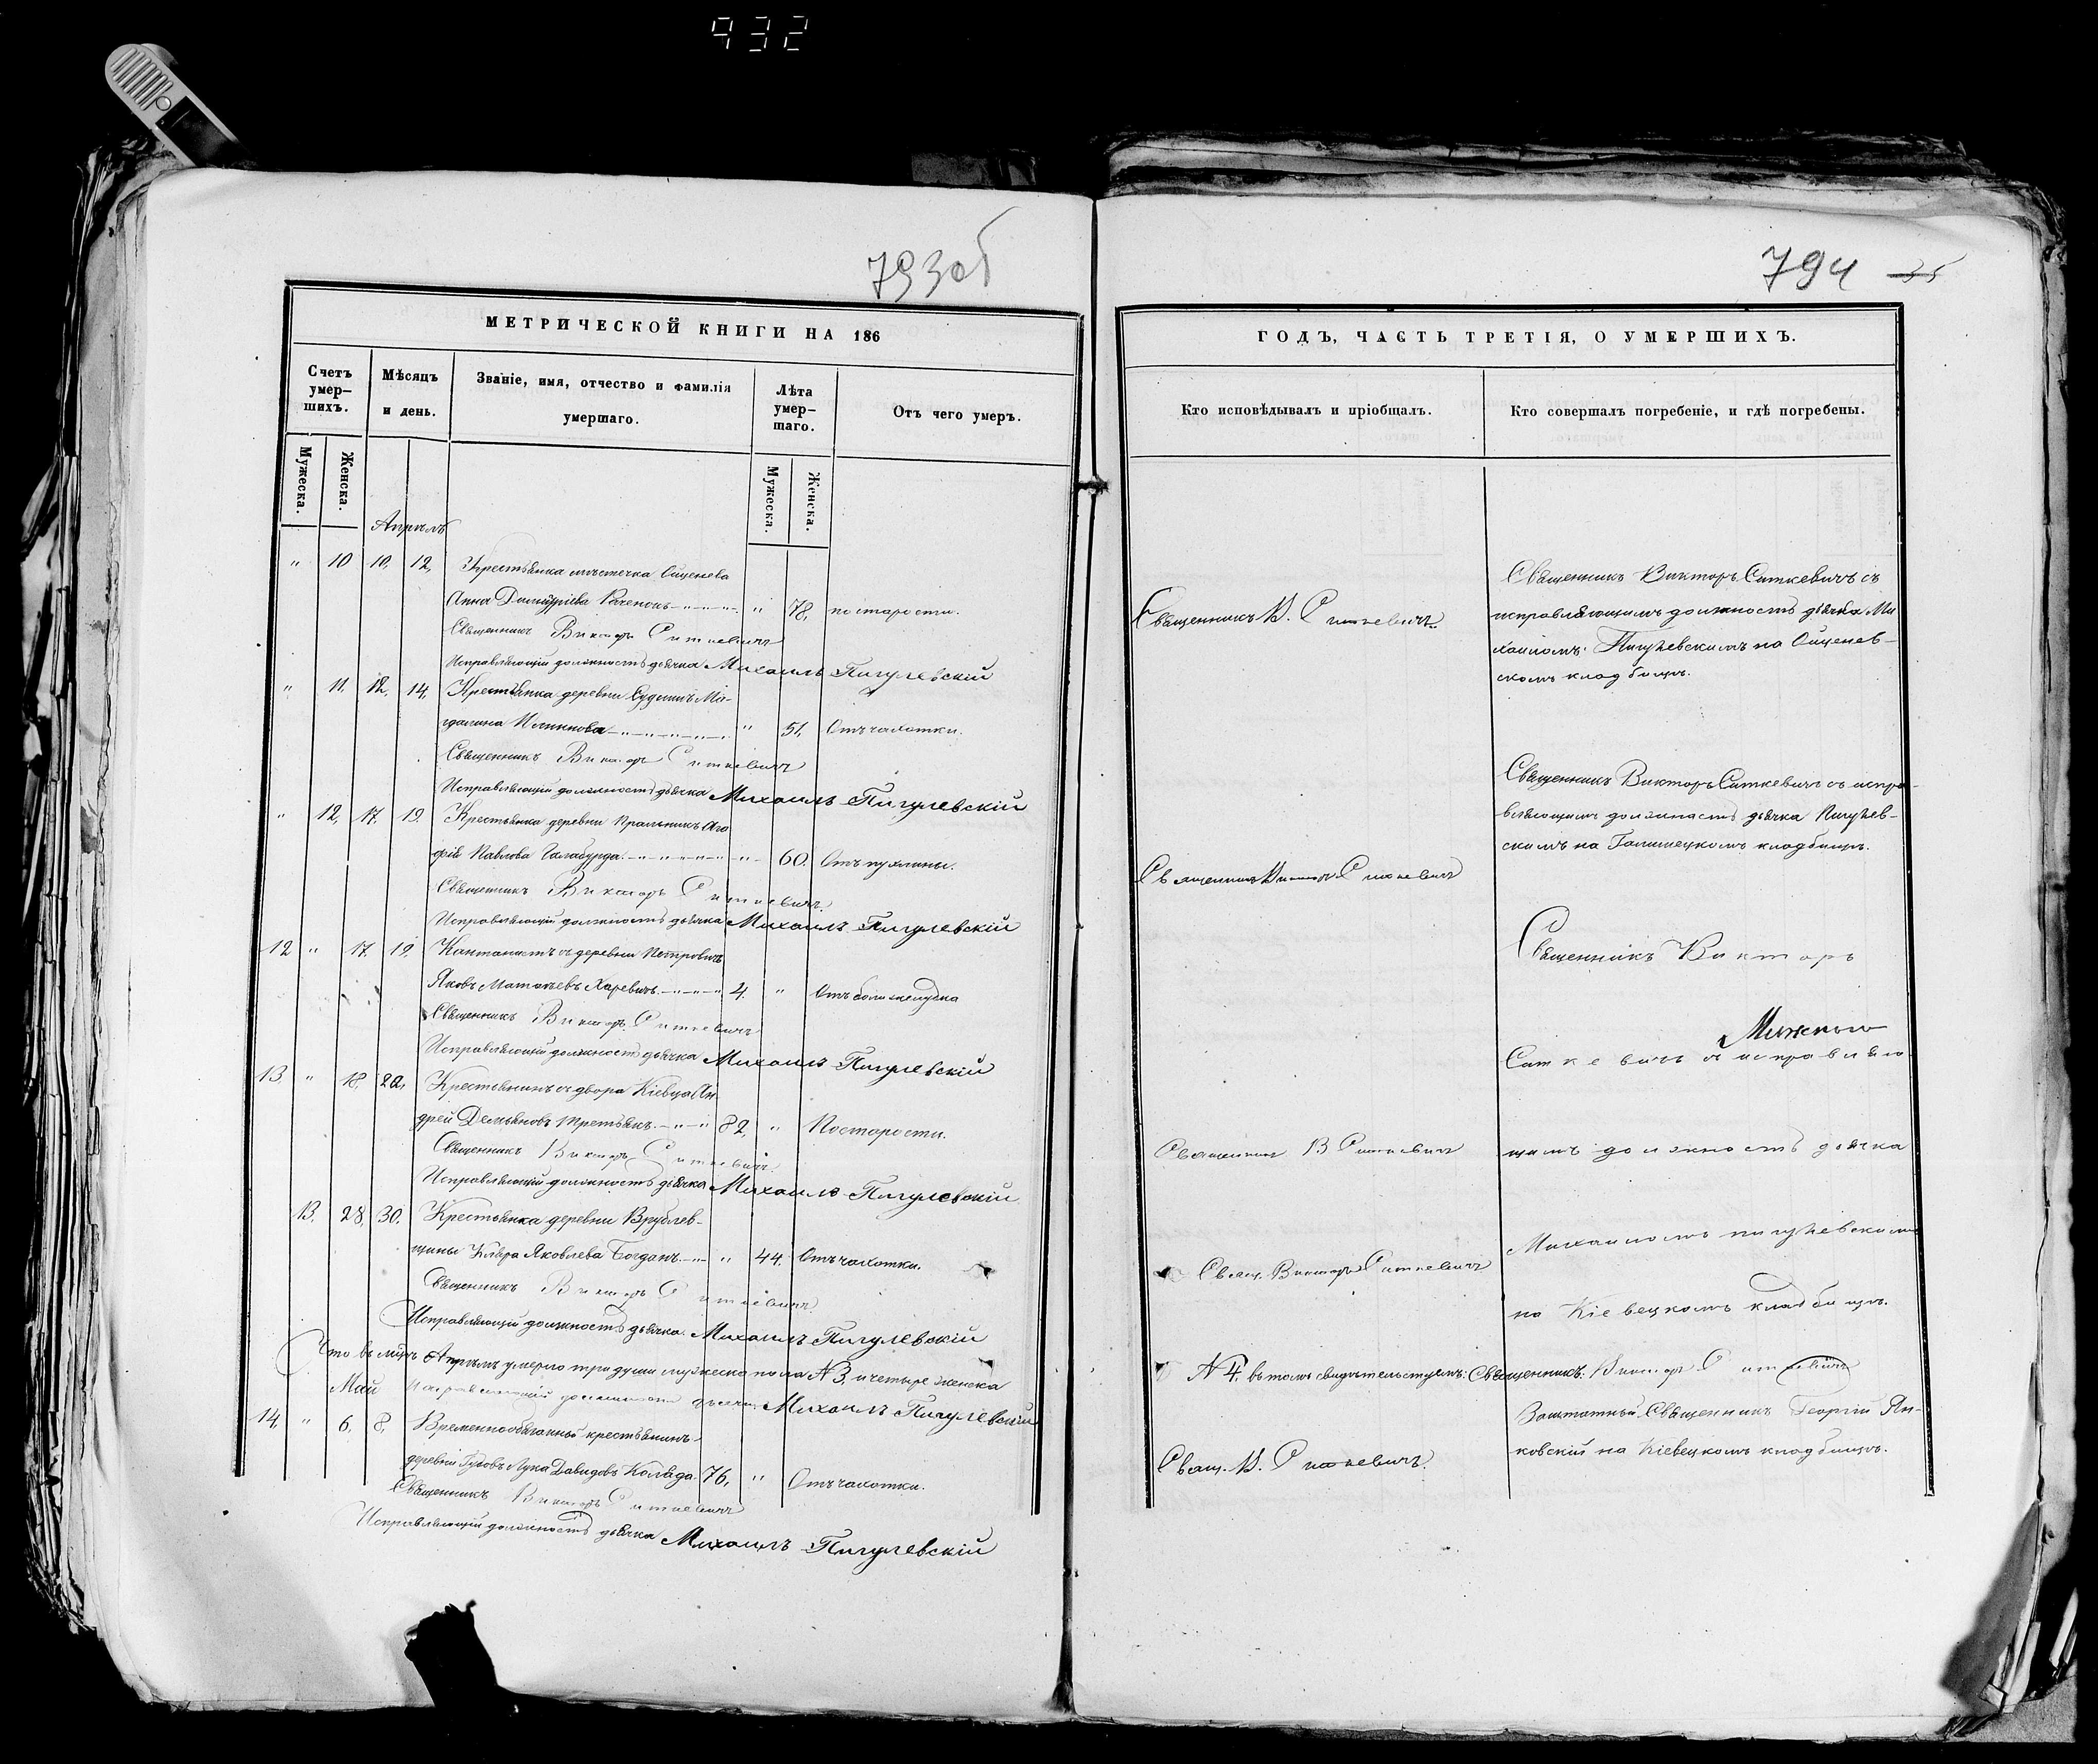 932
793об
794 35
МЕТРИЧЕСКОЙ КНИГИ НА 186
Счетъ умер-шихъ.
Мѣсяцъ и день.
Званіе, имя, отчество и фамилія умершаго.
Лѣта умер-шаго.
Отъ чего умеръ.
Мужеска.
Женска.
Мужеска.
Женска.
Апрѣль
" 10 10, 12, Крестьянка мѣстечка
Анна " 78, по старости.
Священникъ Викторъ Ситкевичъ
Исправляющій должность дьячка Михаилъ Пигулевскій
" 11. 12, 14, Крестьянка деревни Ма-
далина " 51, Отъ чахотки.
Священникъ Викторъ Ситкевичъ
Исправляющій должность дьячка Михаилъ Пигулевскій
" 12, 17. 19. Крестьянка деревни Ага
фія Павлова Галабурда " 60. Отъ пухлины.
Священникъ Викторъ Ситкевичъ
Исправляющій должность дьячка Михаилъ Пигулевскій
12 " 17. 19. Кантонистъ съ деревни Петровичъ
Яковъ Харевичъ 4. " Отъ боли желудка
Священникъ Викторъ Ситкевичъ
Исправляющій должность дьячка Михаилъ Пигулевскій
13 " 18, 20, Крестьянинъ съ двора Кіевца Ан
дрей Демьяновъ Третьякъ 82, " По старости.
Священникъ Викторъ Ситкевичъ
Исправляющій должность дьячка Михаилъ Пигулевскій
13. 28, 30. Крестьянка деревни Врублев-
щины Яковлева Богданъ " 44. Отъ чахотки.
Священникъ Викторъ Ситкевичъ
Исправляющій должность дьячка Михаилъ Пигулевскій
Что въ Апрѣлѣ умерло три души мужеска пола N 3, и четыре женска
Май Исправляющій должность дьячка Михаилъ Пигулевскій
14, " 6, 8, Временнообязанный крестьянинъ
деревни Лука Давидовъ Коляда 76, " Отъ чахотки.
Священникъ Викторъ Ситкевичъ
Исправляющій должность дьячка Михаилъ Пигулевскій
ГОДЪ, ЧАСТЬ ТРЕТІЯ, О УМЕРШИХЪ.
Кто исповѣдывалъ и пріобщалъ.
Кто совершалъ погребеніе, и гдѣ погребены.
Священникъ В. Ситкевичъ.
Священникъ Викторъ Ситкевичъ съ
исправляющимъ должность дьячка Ми
хаиломъ Пигулевскимъ на
скомъ кладбищѣ.
Священникъ Викторъ Ситкевичъ съ испра-
вляющимъ должность дьячка Пигулев-
скимъ на кладбищѣ.
Священникъ Викторъ Ситкевичъ
Священникъ Викторъ
Ситкевичъ съ исправляю
Священникъ В Ситкевичъ
щимъ должность дьячка
Михаиломъ Пигулевскимъ
Свящ. Викторъ Ситкевичъ
на Кіевецкомъ кладбищѣ.
N 4. въ томъ свидѣтельствуемъ: Священникъ: Викторъ Ситкевичъ
Заштатный Священникъ Георгій Ян-
ковскій на Кіевецкомъ кладбищѣ.
Свящ. В. Ситкевичъ.